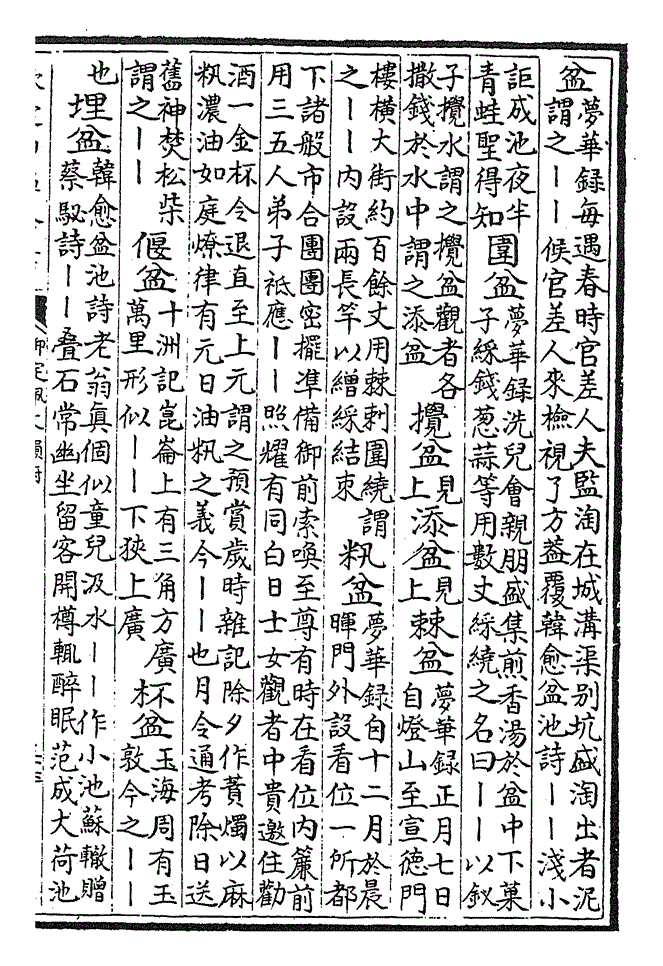 盆夢華録每遇春時官差人夫監淘在城溝渠别坑盛淘出者泥
謂之——候官差人來檢視了方葢覆韓愈盆池詩——淺小
詎成池夜半
青蛙聖得知
圍盆夢華録洗兒會親朋盛集煎香湯於盆中下菓
子綵錢葱蒜等用數丈綵繞之名曰——以釵
子攪水謂之攪盆觀者各
撒錢於水中謂之添盆
攪盆見上
添盆見上
棘盆夢華録正月七日
自燈山至宣德門
樓橫大街約百餘丈用棘刺圍繞謂
之——内設兩長竿以繒綵結束
籸盆夢華録自十二月於晨
暉門外設看位一所都
下諸般市合團團密擺準備御前索喚至尊有時在看位内簾前
用三五人弟子祗應——照耀有同白日士女觀者中貴邀住勸
酒一金杯令退直至上元謂之預賞歲時雜記除夕作蕡燭以麻
籸濃油如庭燎律有元日油籸之義今——也月令通考除日送
舊神焚松柴
謂之——
偃盆十洲記崑崙上有三角方廣
萬里形似——下狹上廣
杯盆玉海周有玉
敦今之——
也
埋盆韓愈盆池詩老翁真個似童兒汲水——作小池蘇轍贈
蔡駰詩——疊石常幽坐留客開樽輒醉眠范成大荷池